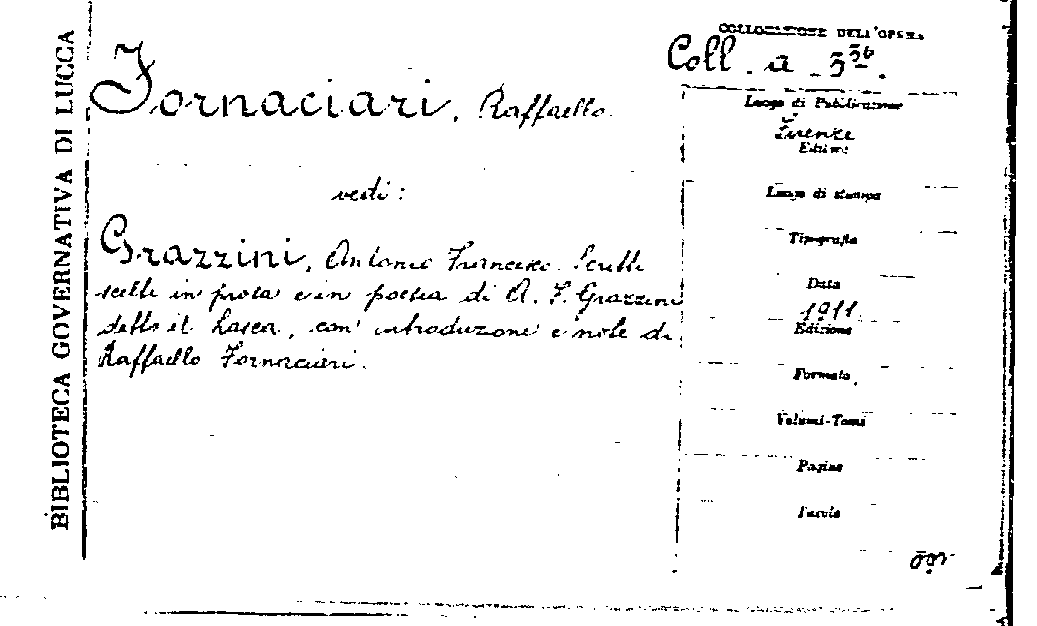 BIBLIOTECA GOVERNATIVA DI LUCCA
COLLOCAZIONE DELL'OPERA
Coll. a 536.
Fornaciari, Raffaello.
vedi:
Grazzini, Antonio Francesco. Scritti
scelti in prosa e in poesia di A. F. Grazzini
detto il Lasca, con introduzione e note di
Raffaello Fornaciari.
Luogo di Pubblicazione
Firenze
Editore
Luogo di stampa
Tipografia
Data
1911
Edizione
Formato
Volumi-Tomi
Pagine
Tavole